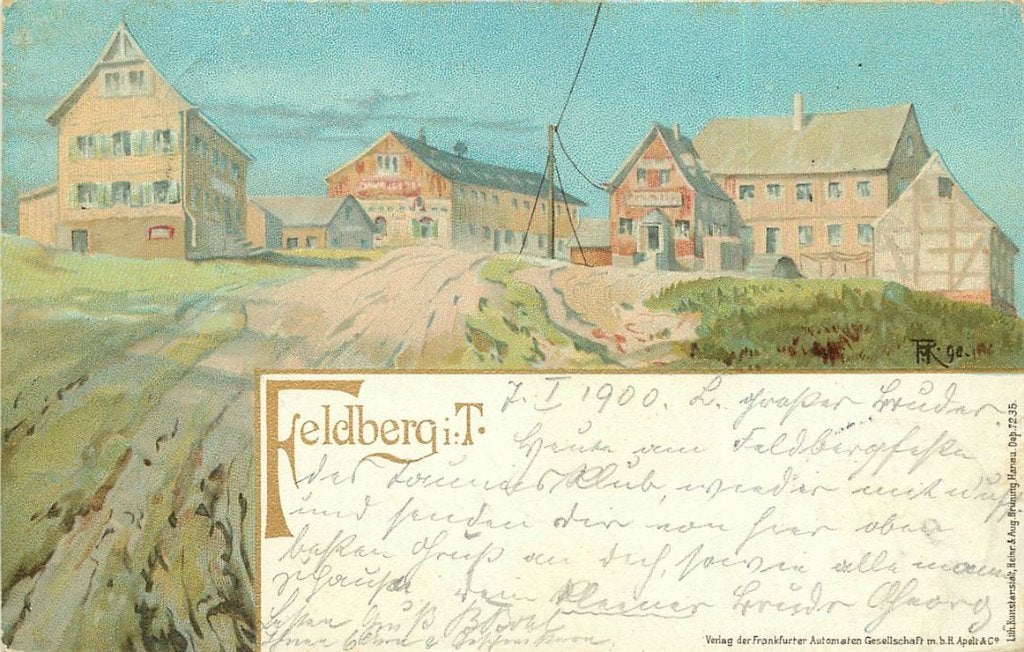 Feldberg i. T.
7. I 1900. L. großer Bruder
Heute am Feldbergfeste
des Taunus Klub, wieder mit
und senden dir von hier oben
besten Gruß an dich, sowie alle
zuhause dein kleiner Bruder Georg
Besten Gruß
Ihren Eltern &
TRK. 98.
Verlag der Frankfurter Automaten Gesellschaft m.b.H. Apelt & Co
Lith. Kunstanstalt, Heinr. & Aug. Brüning, Hanau. Dep. 7235.